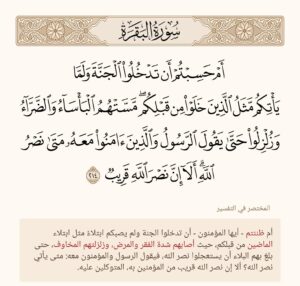 سُورَةُ البَقَرَةِ
أَمْ حَسِبْتُمْ أَن تَدْخُلُوا۟ ٱلْجَنَّةَ وَلَمَّا
يَأْتِكُم مَّثَلُ ٱلَّذِينَ خَلَوْا۟ مِن قَبْلِكُم ۖ مَّسَّتْهُمُ ٱلْبَأْسَآءُ وَٱلضَّرَّآءُ
وَزُلْزِلُوا۟ حَتَّىٰ يَقُولَ ٱلرَّسُولُ وَٱلَّذِينَ ءَامَنُوا۟ مَعَهُۥ مَتَىٰ نَصْرُ
ٱللَّهِ ۗ أَلَآ إِنَّ نَصْرَ ٱللَّهِ قَرِيبٌ ٢١٤
المختصر في التفسير
أم ظننتم - أيها المؤمنون - أن تدخلوا الجنة ولم يصبكم ابتلاء مثل ابتلاء
الماضين من قبلكم، حيث أصابهم شدة الفقر والمرض، وزلزلتهم المخاوف، حتى
بلغ بهم البلاء أن يستعجلوا نصر الله، فيقول الرسول والمؤمنون معه: متى يأتي
نصر الله؟ ألا إن نصر الله قريب من المؤمنين به، المتوكلين عليه.